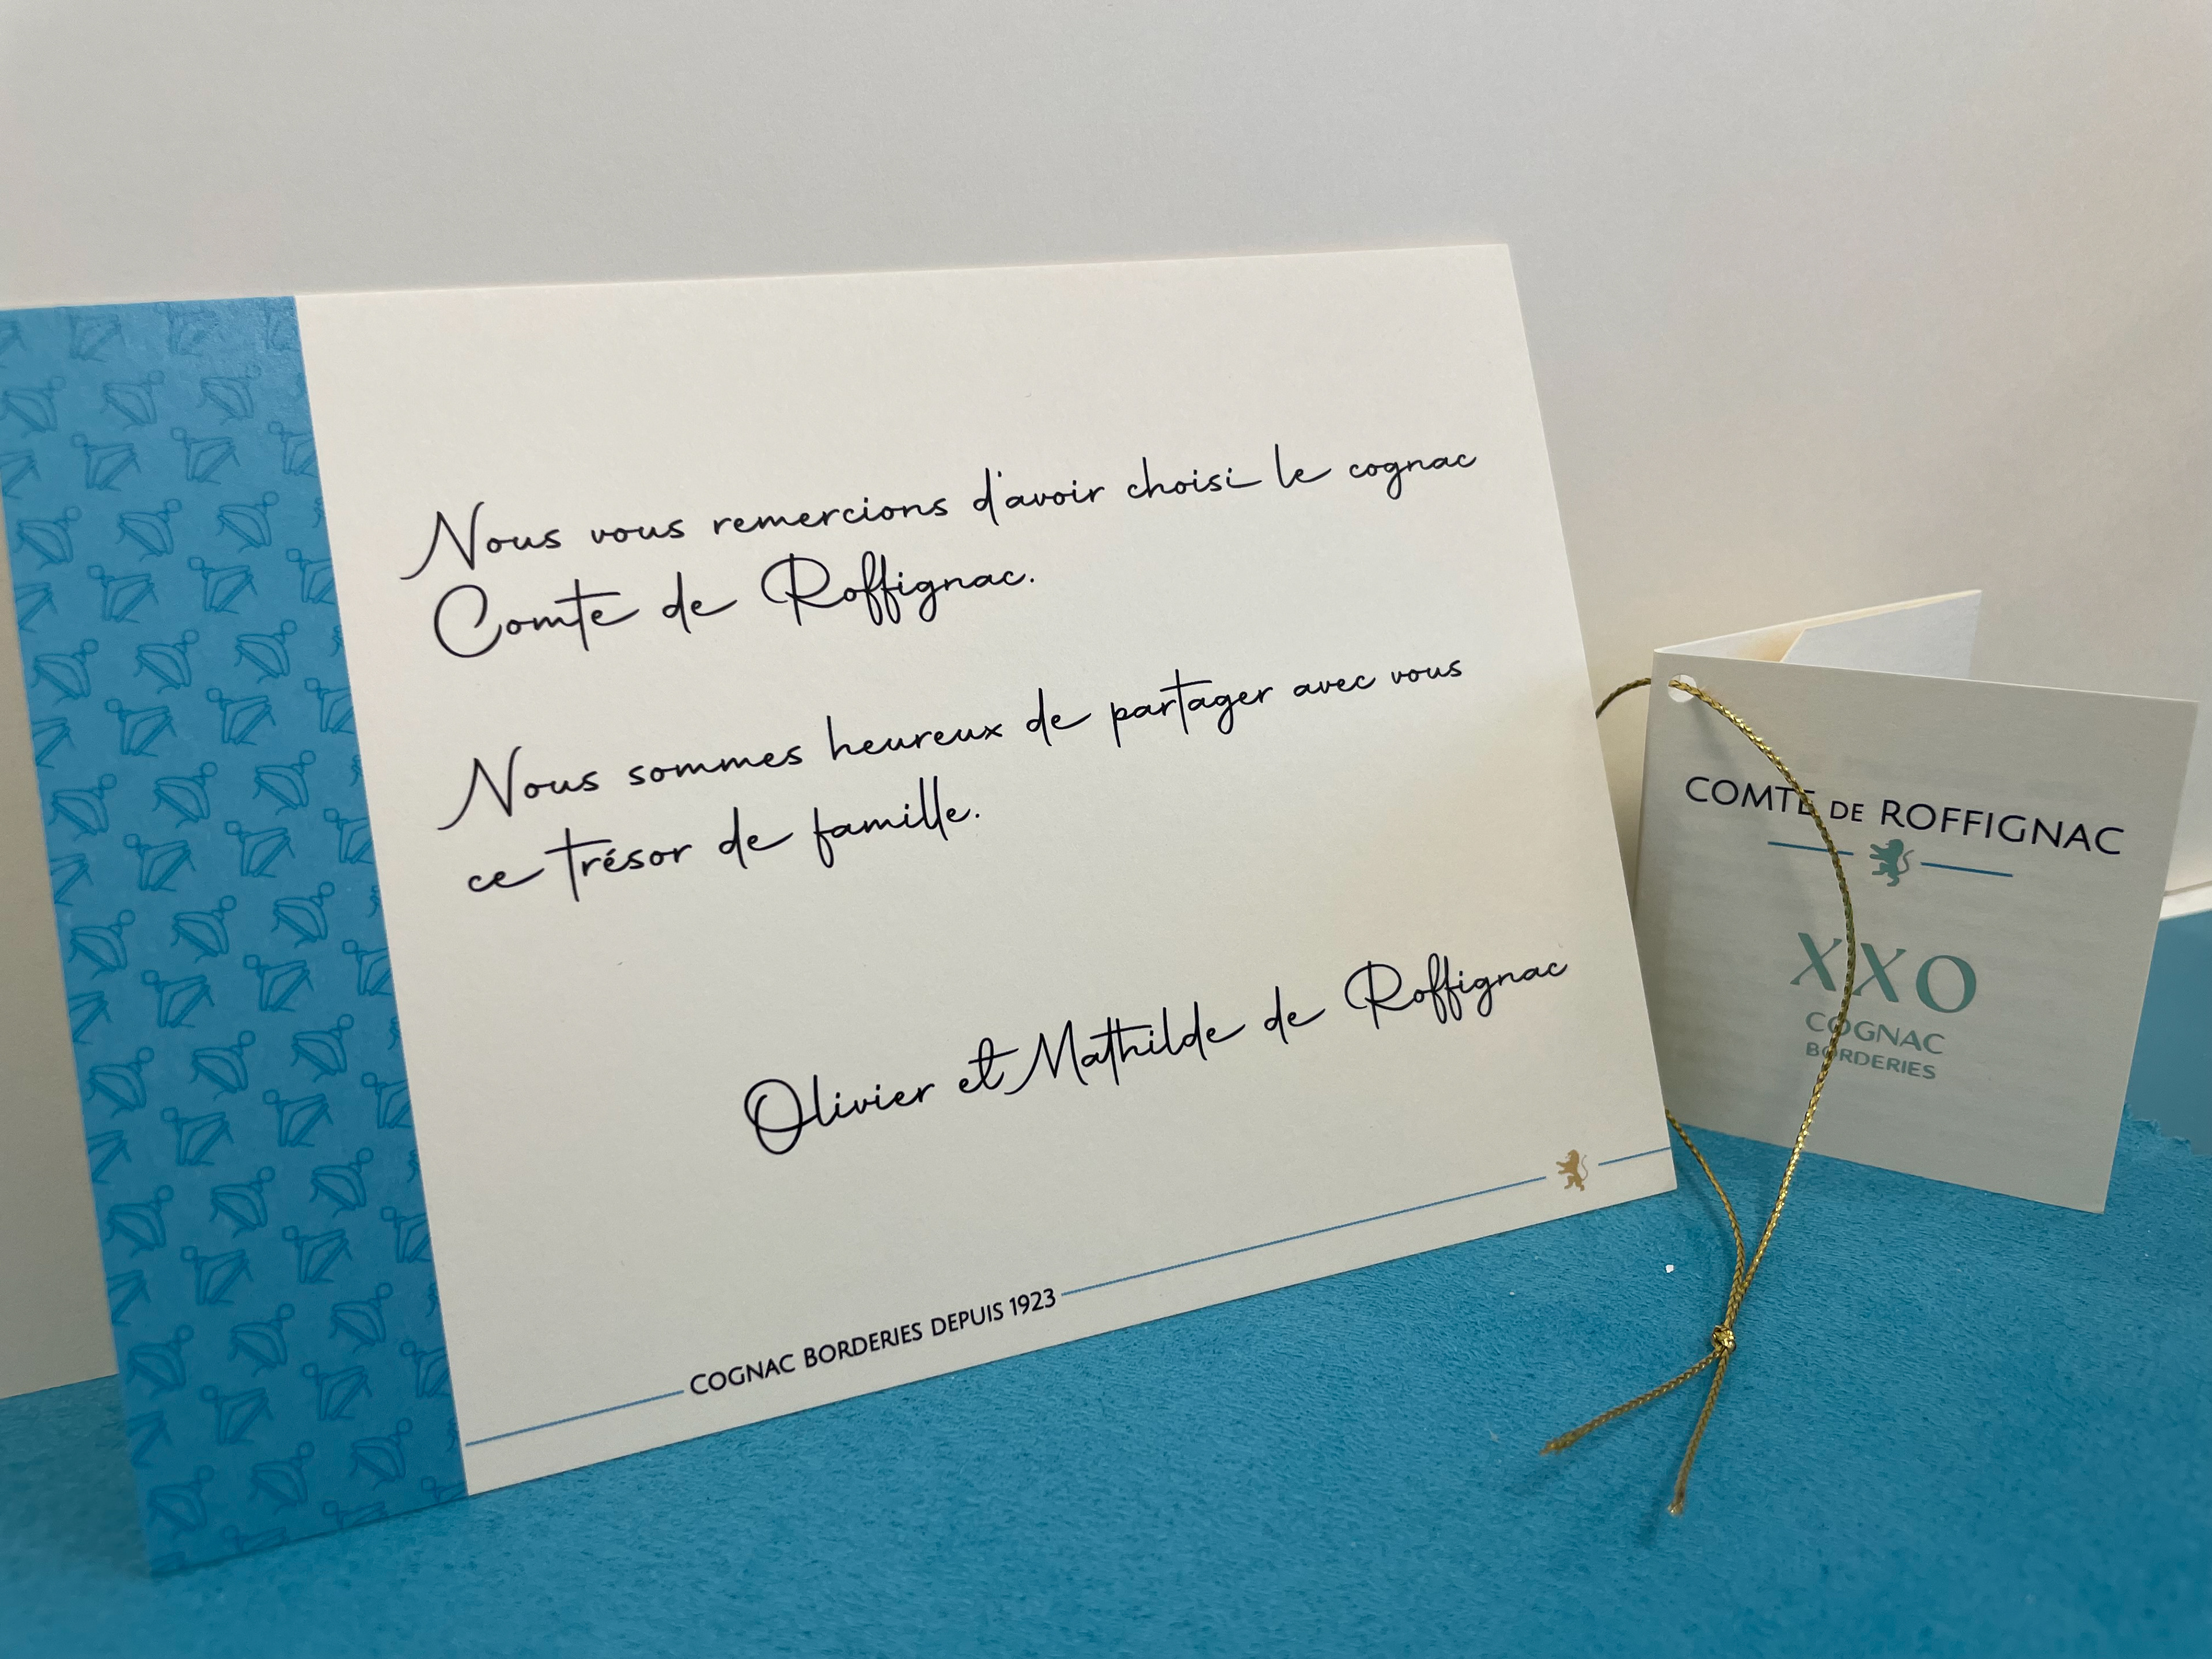 Nous vous remercions d'avoir choisi le cognac
Comte de Roffignac.
Nous sommes heureux de partager avec vous
ce trésor de famille.
Olivier et Mathilde de Roffignac
COGNAC BORDERIES DEPUIS 1923
COMTE DE ROFFIGNAC
XXO
COGNAC
BORDERIES